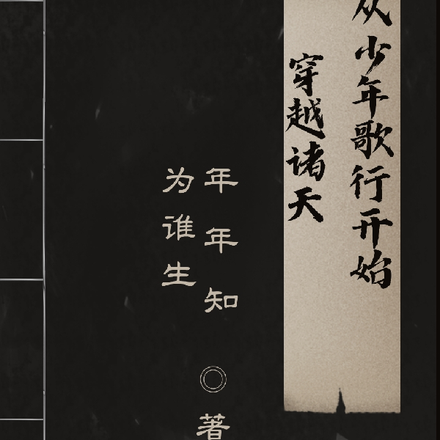 从少年歌行开始
穿越诸天
年年知
为谁生
著